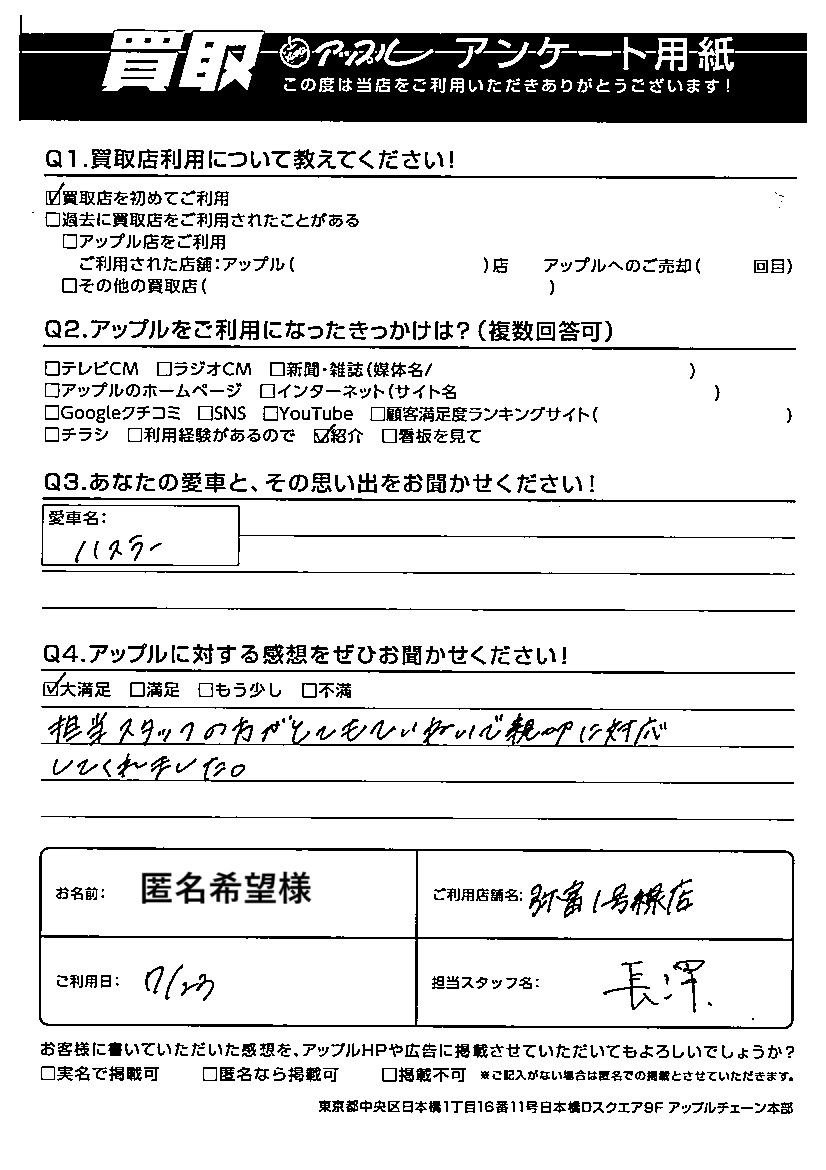 買取 アップル アンケート用紙
この度は当店をご利用いただきありがとうございます!
Q1.買取店利用について教えてください!
☑買取店を初めてご利用
□過去に買取店をご利用されたことがある
□アップル店をご利用
ご利用された店舗:アップル( )店 アップルへのご売却( 回目)
□その他の買取店( )
Q2.アップルをご利用になったきっかけは?(複数回答可)
□テレビCM □ラジオCM □新聞・雑誌(媒体名/ )
□アップルのホームページ □インターネット(サイト名 )
□Googleクチコミ □SNS □YouTube □顧客満足度ランキングサイト( )
□チラシ □利用経験があるので ☑紹介 □看板を見て
Q3.あなたの愛車と、その思い出をお聞かせください!
愛車名:
ハスラー
Q4.アップルに対する感想をぜひお聞かせください!
☑大満足 □満足 □もう少し □不満
担当スタッフの方がとてもていねいで親切に対応
してくれました。
お名前: 匿名希望様 ご利用店舗名: 弥富1号線店
ご利用日: 7/23 担当スタッフ名: 長澤
お客様に書いていただいた感想を、アップルHPや広告に掲載させていただいてもよろしいでしょうか?
□実名で掲載可 □匿名なら掲載可 □掲載不可 ※ご記入がない場合は匿名での掲載とさせていただきます。
東京都中央区日本橋1丁目16番11号日本橋Dスクエア9F アップルチェーン本部